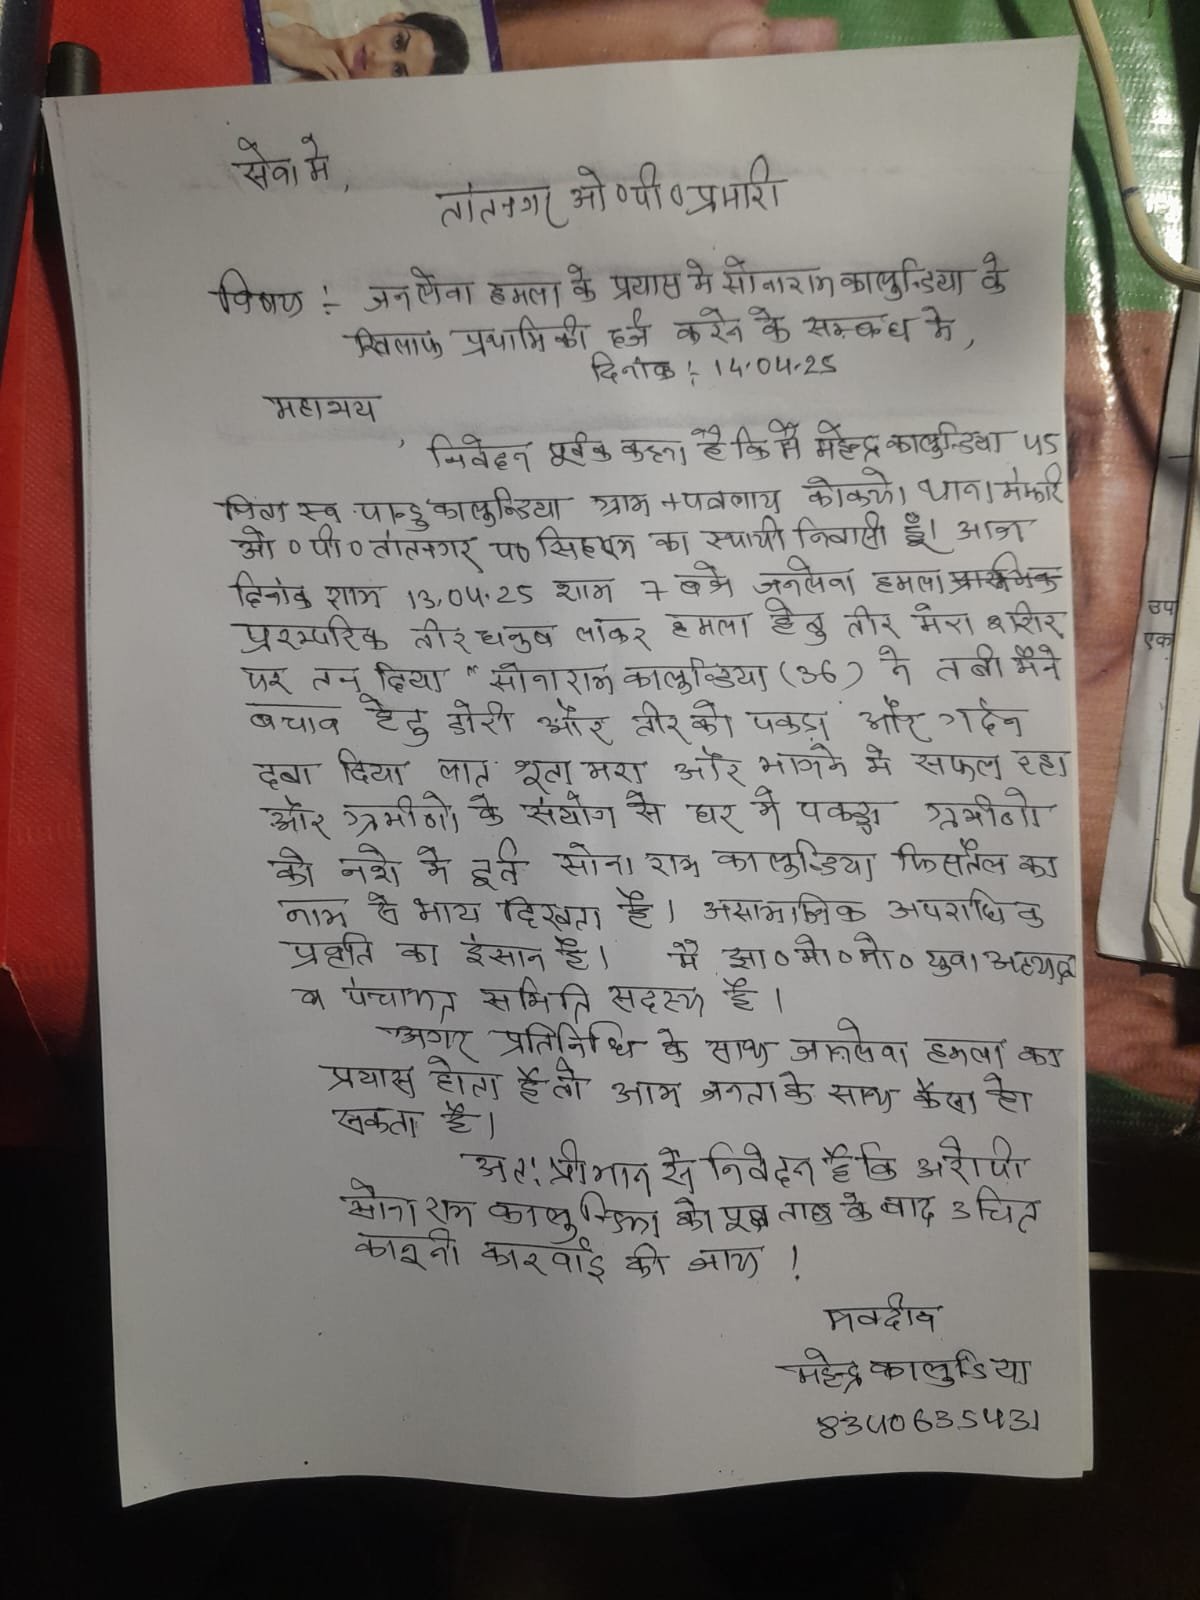 सेवा मे,
तांतनगर ओ०पी० प्रभारी
विषय :- जनलेवा हमला के प्रयास मे सोनाराम कालुन्डिया के
खिलाफ प्रथामिकी दर्ज करेने के सम्बन्ध मे,
दिनांक :- 14.04.25
महाशय
, निवेदन पूर्वक कहना है कि मै महेन्द्र कालुन्डिया 45
पिता स्व पान्डु कालुन्डिया ग्राम + थाना
ओ०पी० तांतनगर प० सिंहभूम का स्थायी निवासी हूँ। आज
दिनांक शाम 13.04.25 शाम 7 बजे जनलेवा हमला
प्ररम्परिक तीर धनुष लाकर हमला हेतु तीर मेरा शरिर
पर तन दिया " सोनाराम कालुन्डिया (36) ने तबी मैने
बचाव हेतु डोरी और तीर को पकड़ा और गर्दन
दबा दिया लात मरा और भागने मे सफल रहा
और ग्रमीणो के संयोग से घर मे पकड़ा ग्रमीणो
को नशे मे सोना राम कालुन्डिया का
नाम से भाय दिखता है। असामाजिक अपराधिक
प्रवृति का इंसान है। मै झा०मो०मो० युवा अध्यक्ष
व पंचायत समिति सदस्य हूँ।
अगर प्रतिनिधि के साथ जानलेवा हमला का
प्रयास होता है तो आम जनता के साथ कैसा हो
सकता है।
अतः श्रीमान से निवेदन है कि अरोपी
सोना राम कालुन्डिया को पूछ ताछ के बाद उचित
कानूनी कारवाई की जाय !
भवदीय
महेन्द्र कालुन्डिया
8340635431
उप
एक